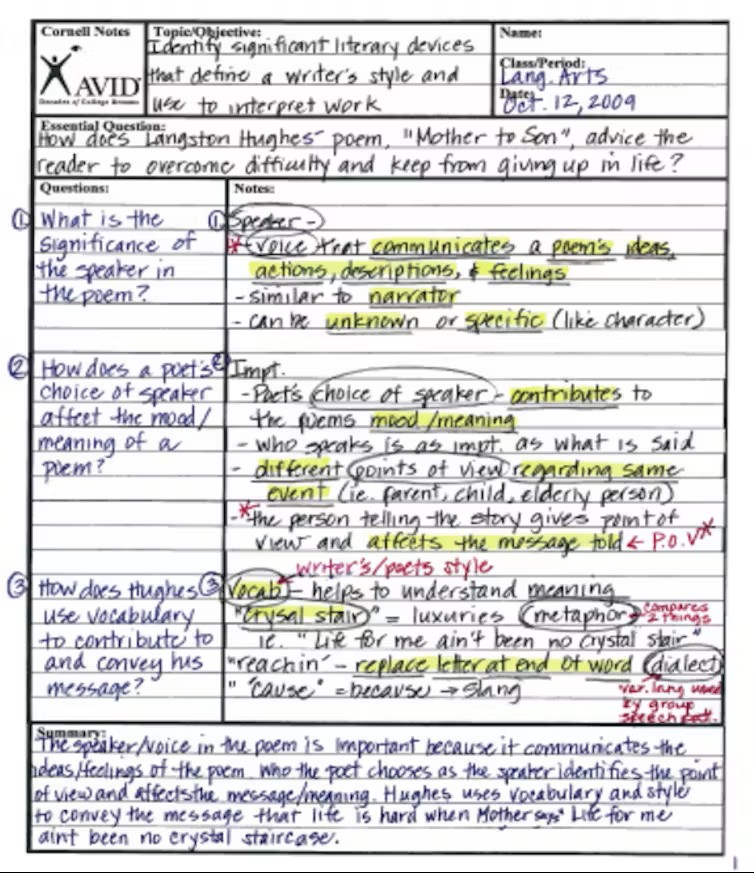 Cornell Notes
AVID
Decades of College Dreams
Topic/Objective:
Identify significant literary devices
that define a writer's style and
use to interpret work
Name:
Class/Period:
Lang. Arts
Date:
Oct. 12, 2009
Essential Question:
How does Langston Hughes' poem, "Mother to Son", advice the
reader to overcome difficulty and keep from giving up in life?
Questions:
① What is the
significance of
the speaker in
the poem?
② How does a poet's
choice of speaker
affect the mood/
meaning of a
poem?
③ How does Hughes
use vocabulary
to contribute to
and convey his
message?
Notes:
① Speaker -
* voice that communicates a poem's ideas,
actions, descriptions, & feelings
- similar to narrator
- can be unknown or specific (like character)
② Impt.
- Poet's choice of speaker - contributes to
the poems mood/meaning
- who speaks is as impt. as what is said
- different points of view regarding same
event (ie. parent, child, elderly person)
- *the person telling the story gives point of
view and affects the message told ← P.O.V*
writer's/poets style
③ Vocab - helps to understand meaning
"crysal stair" = luxuries (metaphor) → compares
2 things
ie. "Life for me ain't been no crystal stair"
"reachin' - replace letter at end of word (dialect)
" 'cause" = because → slang
var. lang used
by group
speech patt.
Summary:
The speaker/voice in the poem is important because it communicates the
ideas/feelings of the poem. Who the poet chooses as the speaker identifies the point
of view and affects the message/meaning. Hughes uses vocabulary and style
to convey the message that life is hard when Mother says "Life for me
aint been no crystal staircase.
1